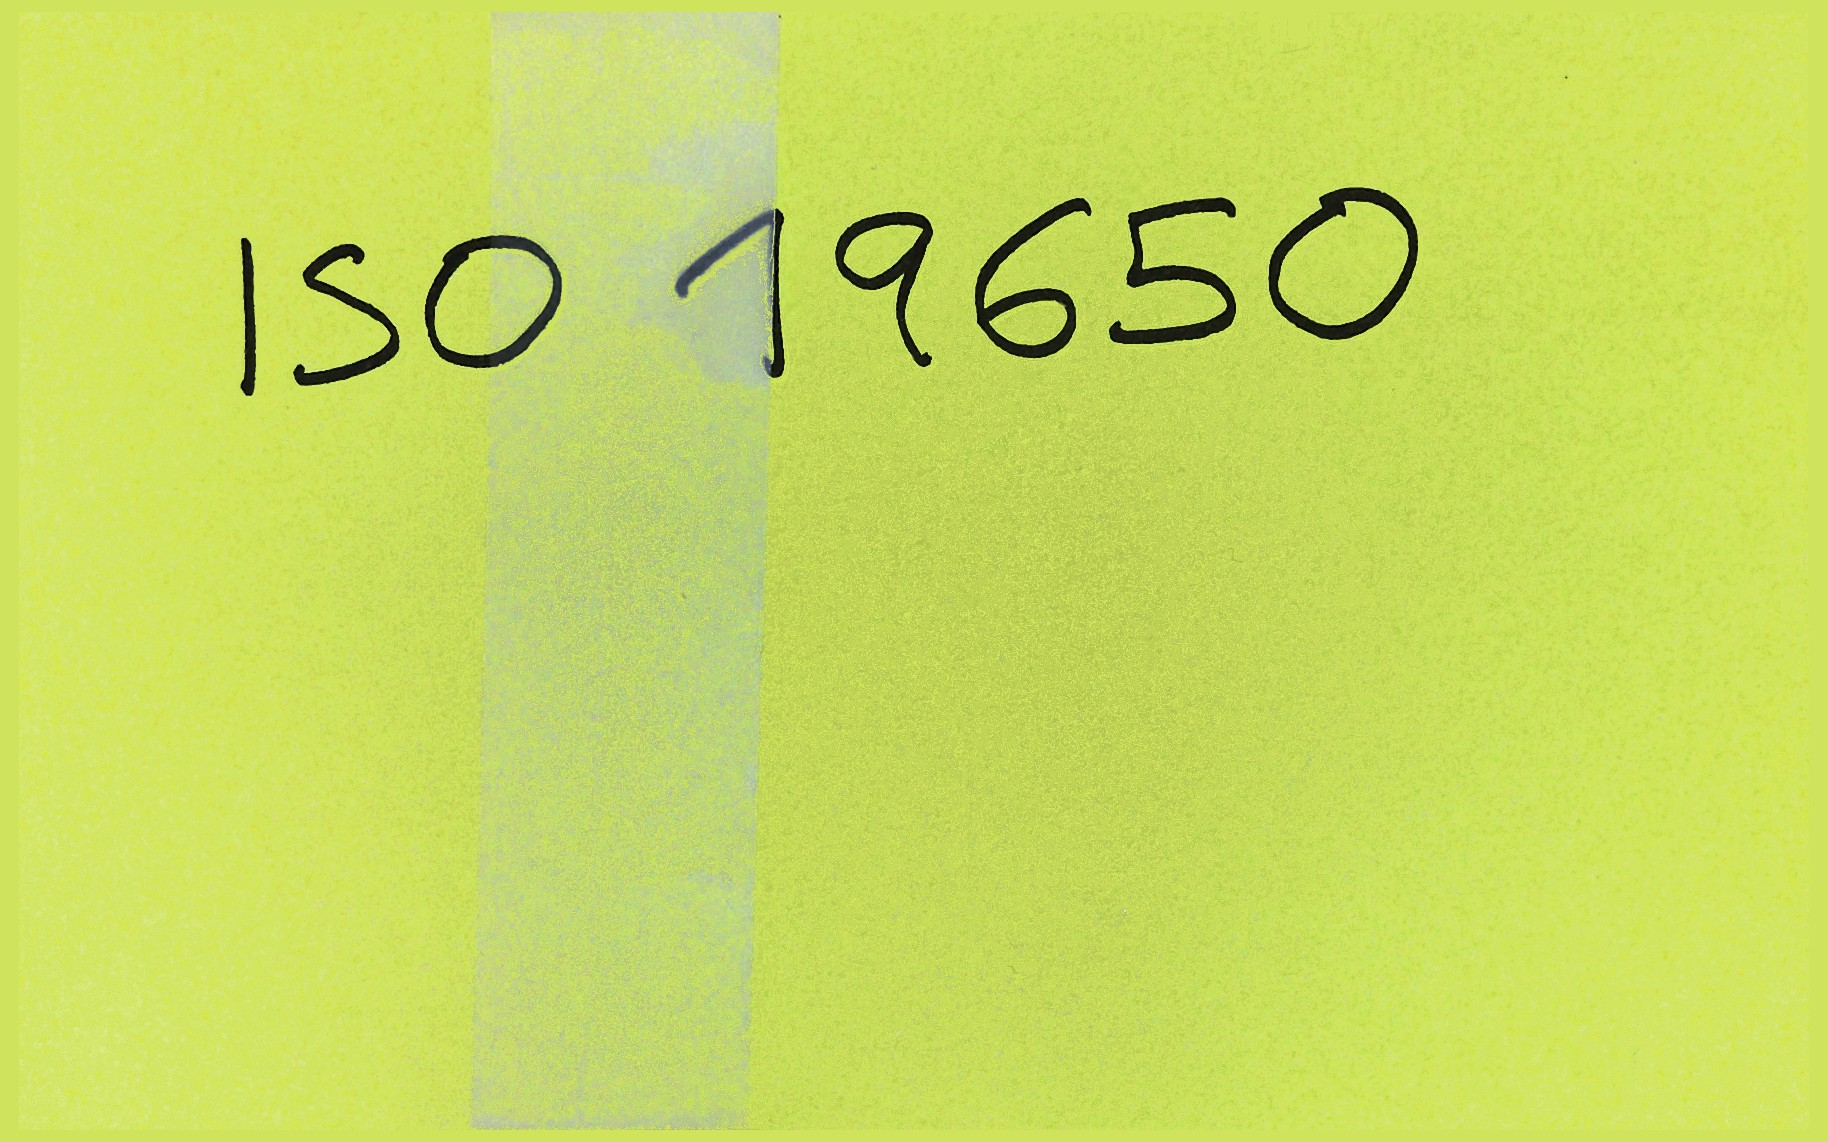 ISO 19650